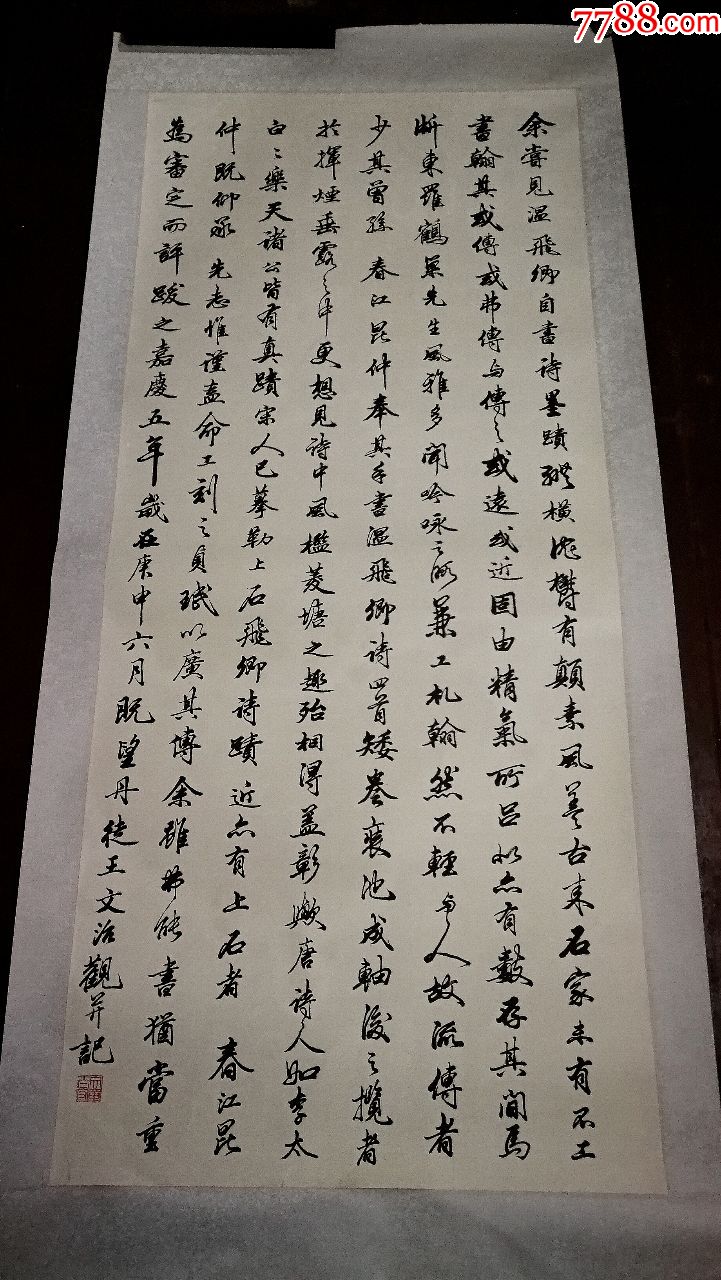 7788.com
余嘗見溫飛卿自書詩墨蹟縱橫沈欝有顛素風姜古來名家未有不工
書翰其或傳或弗傳与傳之或遠或近固由精氣所呂然亦有數存其間焉
浙東羅鶴巢先生風雅多聞吟咏之所兼工札翰然不輕与人故流傳者
少其曾孫春江昆仲奉其手書溫飛卿詩四首矮卷裒池成軸後之攬者
於揮煙垂露之中更想見詩中風檻菱塘之趣殆相得益彰歟唐詩人如李太
白〻樂天諸公皆有真蹟宋人已摹勒上石飛卿詩蹟近亦有上石者春江昆
仲既仰承先志惟謹盍命工刻之貞珉以廣其傳余雖弗能書猶當重
為審定而評跋之嘉慶五年歲在庚申六月既望丹徒王文治觀并記